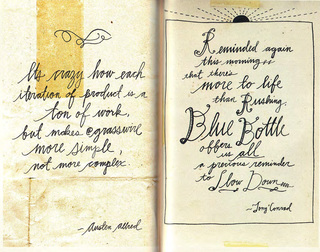 It's crazy how each
iteration of product is a
ton of work,
but makes @grasswire
more simple,
not more complex.
- Austen Allred
Reminded again
this morning
that there's
more to life
than Rushing.
Blue Bottle
offers
us all
a precious reminder
to Slow Down
- Tony Conrad